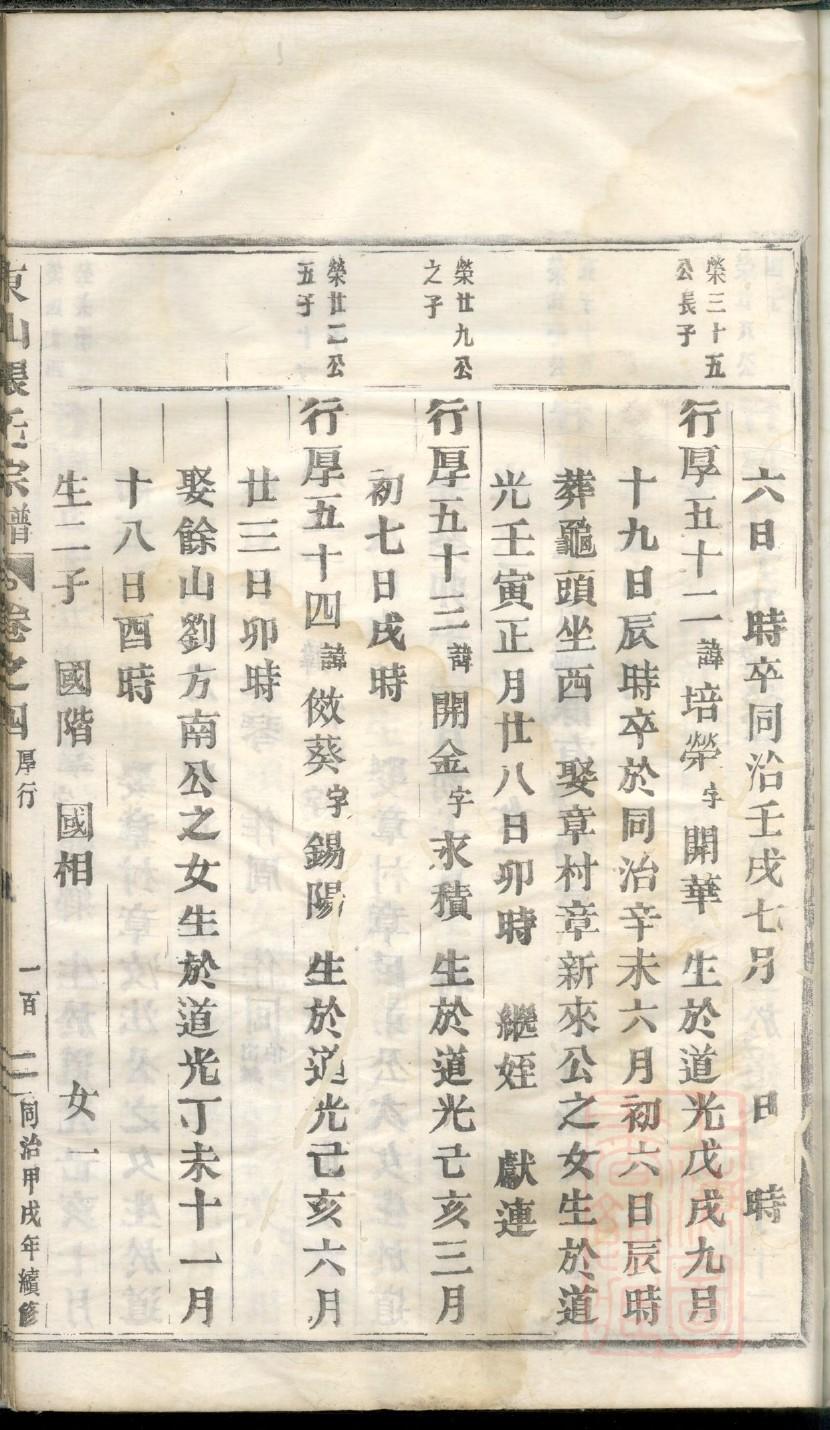 六日　時卒同治壬戌七月　日　時
榮三十五
公長子
行厚五十二諱培榮字開華　生於道光戊戌九月
十九日辰時卒於同治辛未六月初六日辰時
葬龜頭坐西　娶章村章新來公之女生於道
光壬寅正月廿八日卯時　繼姪　獻連
榮廿九公
之子
行厚五十三諱開金字永積　生於道光己亥三月
初七日戌時
榮廿二公
五子
行厚五十四諱儌葵字錫陽　生於道光己亥六月
廿三日卯時
娶餘山劉方南公之女生於道光丁未十一月
十八日酉時
生二子　國階　國相　女一
東山張氏宗譜　卷之四　厚行　一百二　同治甲戌年續修